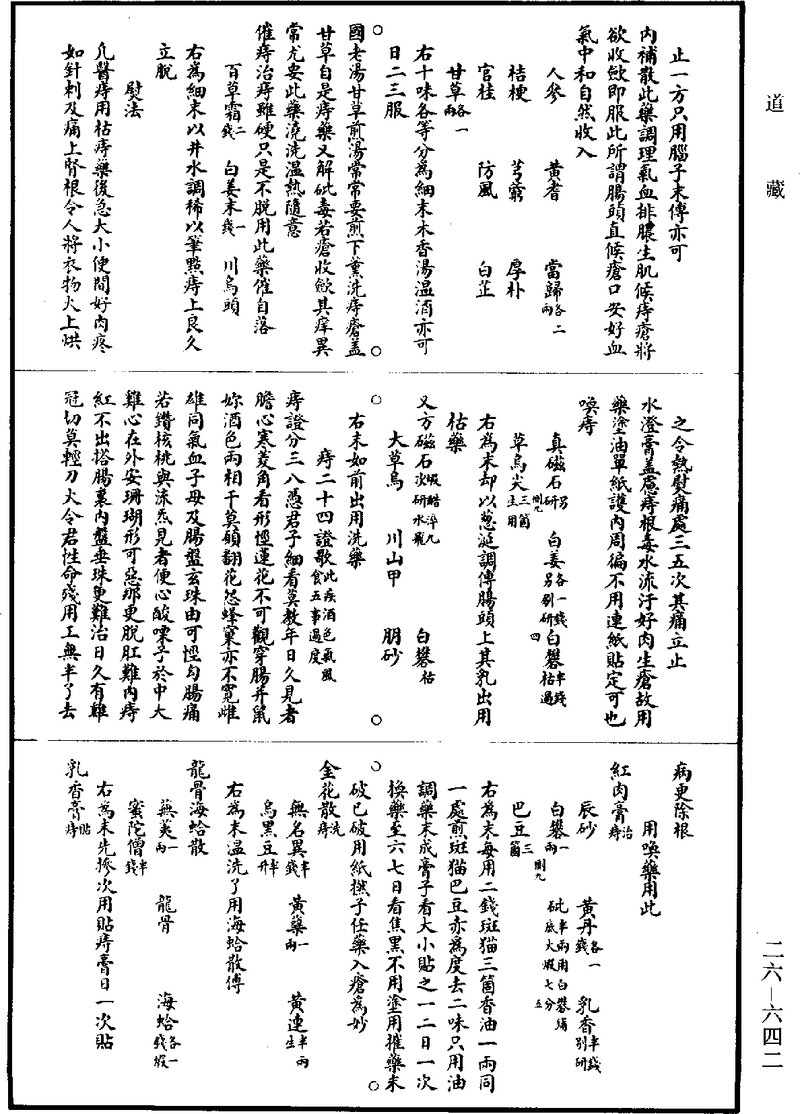 道藏
止一方只用腦子末傅亦可
內補散此藥調理氣血排膿生肌候痔瘡將
欲收斂即服此所謂腸頭直候瘡口安好血
氣中和自然收入
人參 黃耆 當歸各二兩
桔梗 芎藭 厚朴
官桂 防風 白芷
甘草各一兩
右十味各等分為細末木香湯温酒亦可
日二三服
國老湯甘草煎湯常常要煎下薰洗痔瘡蓋
甘草自是痔藥又解砒毒若瘡收斂其痒異
常尤要此藥澆洗温熱隨意
催痔治痔雖硬只是不脫用此藥催自落
百草霜二錢 白姜末一錢 川烏頭
右為細末以井水調稀以筆點痔上良久
立脫
熨法
凡醫痔用枯痔藥後急大小便間好肉疼
如針刺及痛上腎根令人將衣物火上烘
之令熱熨痛處三五次其痛立止
水澄膏蓋慮痔根毒水流汙好肉生瘡故用
藥塗油單紙護內周徧不用連紙貼定可也
喚痔
真磁石另研 白姜各一錢另剉研 白礬半錢枯過四
草烏尖三箇生用
右為末却以葱涎調傅腸頭上其乳出用
枯藥
又方磁石煅醋淬九次研水飛 白礬枯
大草烏 川山甲 朋砂
右末如前出用洗藥
痔二十四證歌此疾酒色氣風食五事過度
痔證分三八憑君子細看莫教年日久見者
膽心寒菱角看形慳蓮花不可觀穿腸并鼠
妳酒色兩相干莫頭翻花怨蜂窠亦不寬雌
雄同氣血子母及腸盤玄珠由可慳勾腸痛
若鑽核桃與流炁見者便心酸嗓子於中大
雞心在外安珊瑚形可惡那更脫肛難內痔
紅不出搭腸裏內盤垂珠更難治日久有雞
冠切莫輕刀火令君性命殘用工無半了去
病更除根
用喚藥用此
紅肉膏治痔
辰砂 黃丹各一錢 乳香半錢別研
白礬一兩 砒半兩用白礬鋪底火煅七分五
巴豆三箇
右為末每用二錢斑猫三箇香油一兩同
一處煎斑猫巴豆赤為度去二味只用油
調藥末成膏子看大小貼之一二日一次
換藥至六七日看焦黑不用塗用摧藥未
破已破用紙撫子任藥入瘡為妙
金花散洗痔
無名異半錢 黃蘗一兩 黃連半兩生
烏黑豆半升
右為末温洗了用海蛤散傅
龍骨海蛤散
蕪荑一兩 龍骨 海蛤各一錢煅
蜜陀僧半錢
右為末先摻次用貼痔膏日一次貼
乳香膏貼痔
二六—六四二